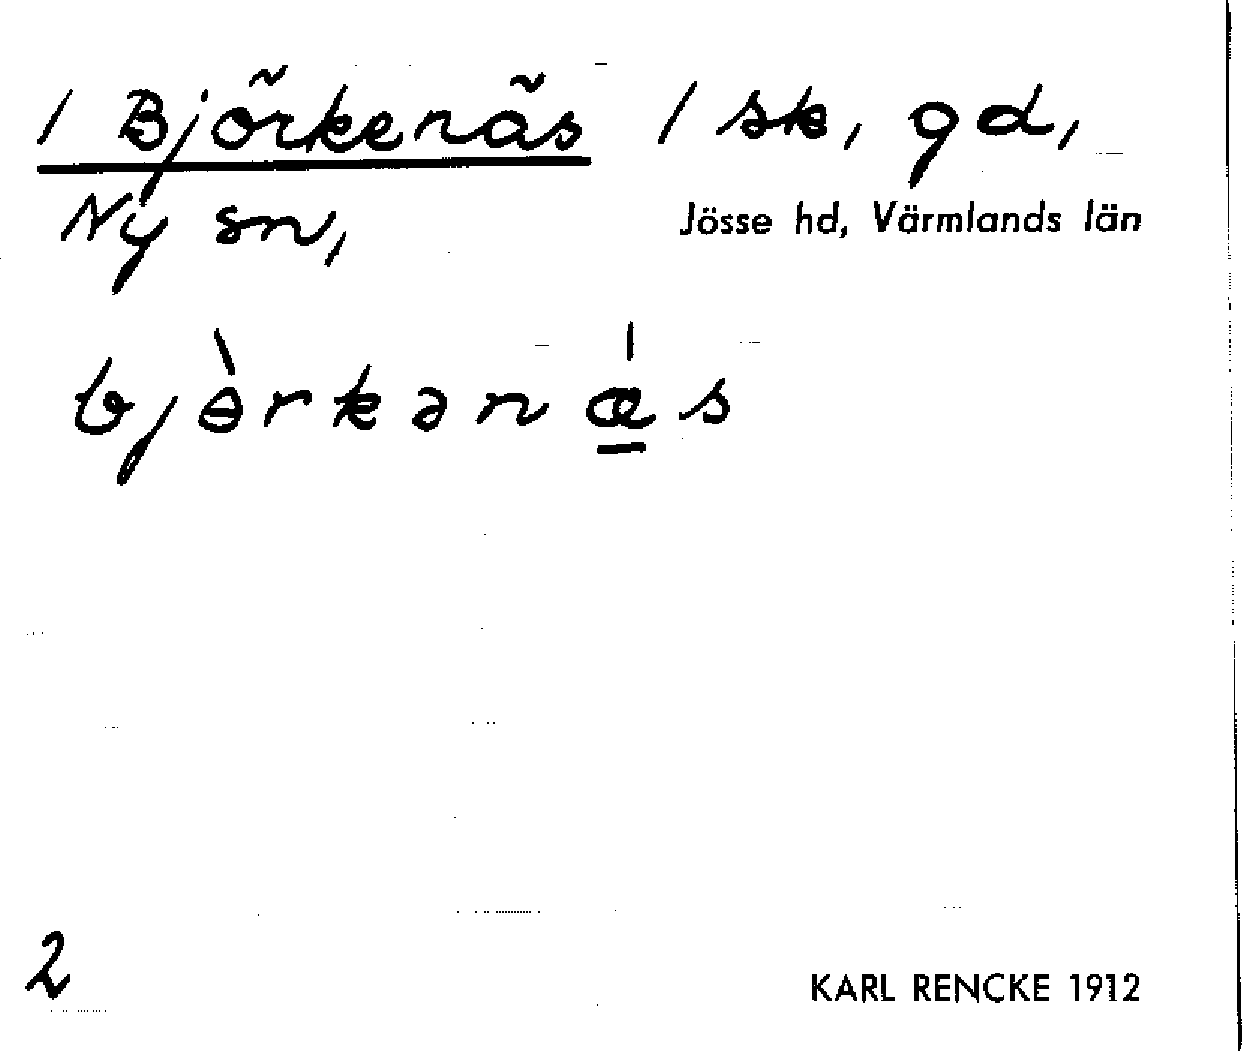 / Björkenäs / sk, gd,
Ny sn, Jösse hd, Värmlands län
bjɵ̀rkənǽs
2
KARL RENCKE 1912